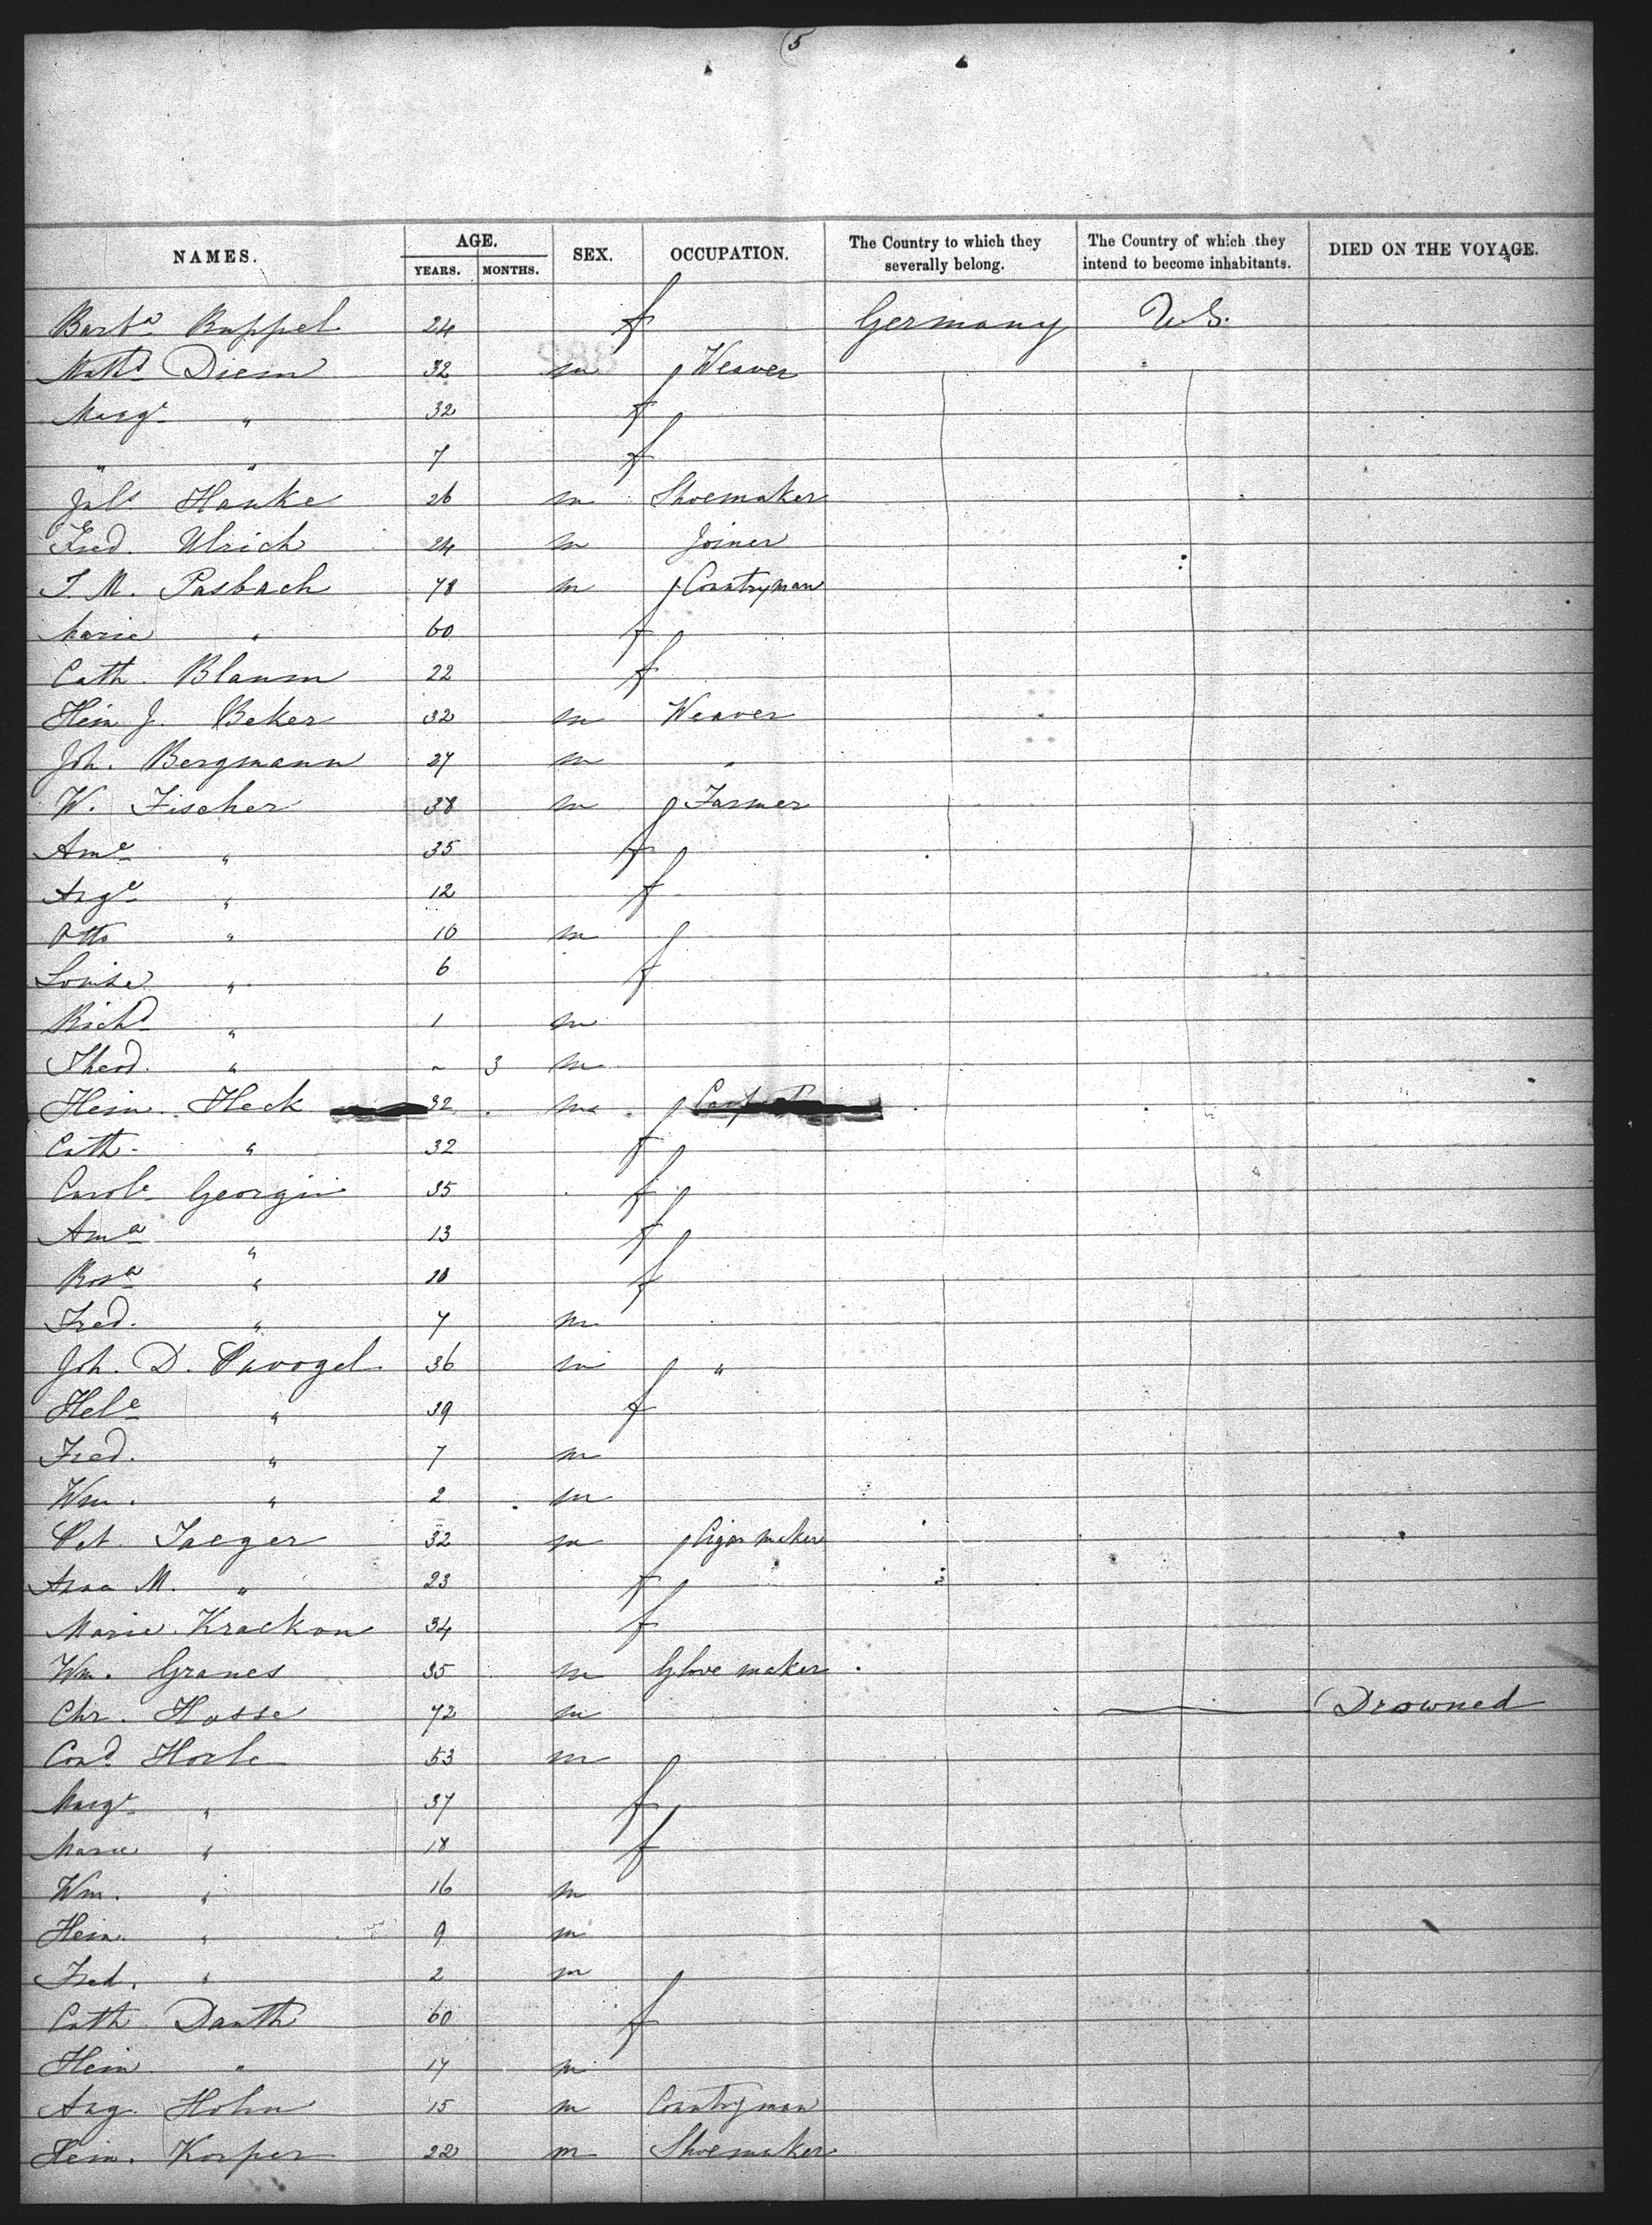 (5
NAMES. AGE. YEARS. MONTHS. SEX. OCCUPATION. The Country to which they severally belong. The Country of which they intend to become inhabitants. DIED ON THE VOYAGE.
Barbª Ruppel 24 f Germany U.S.
Diem 32 m Weaver
Margt " 32 f
" " 7 f
Juls Hanke 26 m Shoemaker
Fred. Ulrich 24 m Joiner
J. M. Pasbach 78 m Countryman
Marie " 60 f
Cath. Blaum 22 f
Hein J. Beker 32 m Weaver
Joh. Bergmann 27 m "
W. Fischer 38 m Farmer
Ame " 35 f
Auge " 12 f
Otto " 10 m
Louise " 6 f
Richd " 1 m
Theod. " ~ 3 m
Hein. Heck 32 m
Cath. " 32 f
Carole Georgii 35 f
Amª " 13 f
Rosª " 10 f
Fred. " 7 m
Joh. D. 36 m "
Hele " 39 f
Fred. " 7 m
Wm. " 2 m
Pet. Jaeger 32 m Cigar maker
Anna M. " 23 f
Marie Krackon 34 f
Wm. Granes 35 m Glove maker
Chr. Hasse 72 m Drowned
Cond 53 m
Margt " 37 f
Marie " 18 f
Wm. " 16 m
Hein. " 9 m
Fred. " 2 m
Cath. Danth 60 f
Hein " 17 m
Aug. Hohn 15 m Countryman
Hein. Korper 22 m Shoemaker